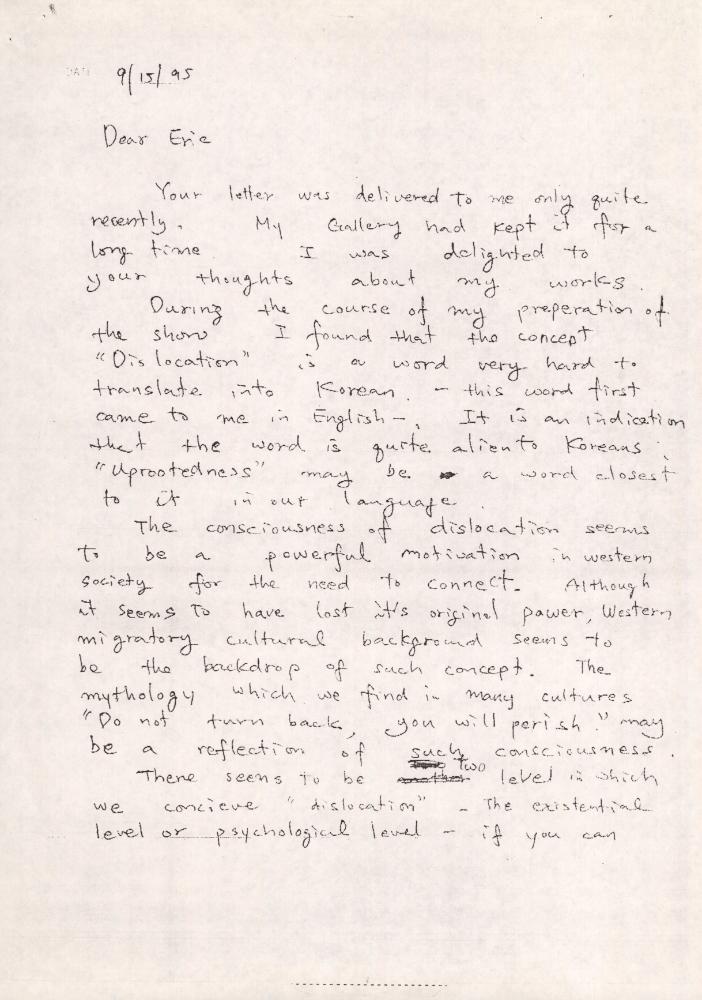 DATE
9/15/95
Dear Eric
Your letter was delivered to me only quite
recently. My Gallery had kept it for a
long time I was delighted to
your thoughts about my works.
During the course of my preperation of
the show I found that the concept
"Dislocation" is a word very hard to
translate into Korean. - this word first
came to me in English -. It is an indication
that the word is quite alien to Koreans.
"Uprootedness" may be a word closest
to it in our language.
The consciousness of dislocation seems
to be a powerful motivation in western
society for the need to connect. Although
it seems to have lost it's original power, Western
migratory cultural background seems to
be the backdrop of such concept. The
mythology which we find in many cultures
"Do not turn back, you will perish." may
be a reflection of such consciousness.
There seems to be two level in which
we concieve "dislocation" - The existential
level or psychological level - if you can